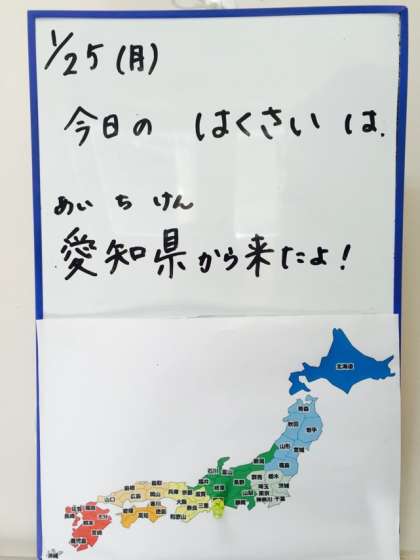 1/25(月)
今日の はくさい は、
あい ち けん
愛知県から来たよ!
北海道
青森
秋田
岩手
山形
宮城
福島
新潟
石川 富山
群馬 栃木
福井 岐阜 長野
埼玉 茨城
山梨 東京
神奈川 千葉
静岡
島根 鳥取
兵庫 京都 滋賀
山口 広島 岡山
大阪
香川
奈良 三重
愛媛 高知 徳島
和歌山
佐賀 福岡
長崎 大分
熊本
宮崎
鹿児島
沖縄